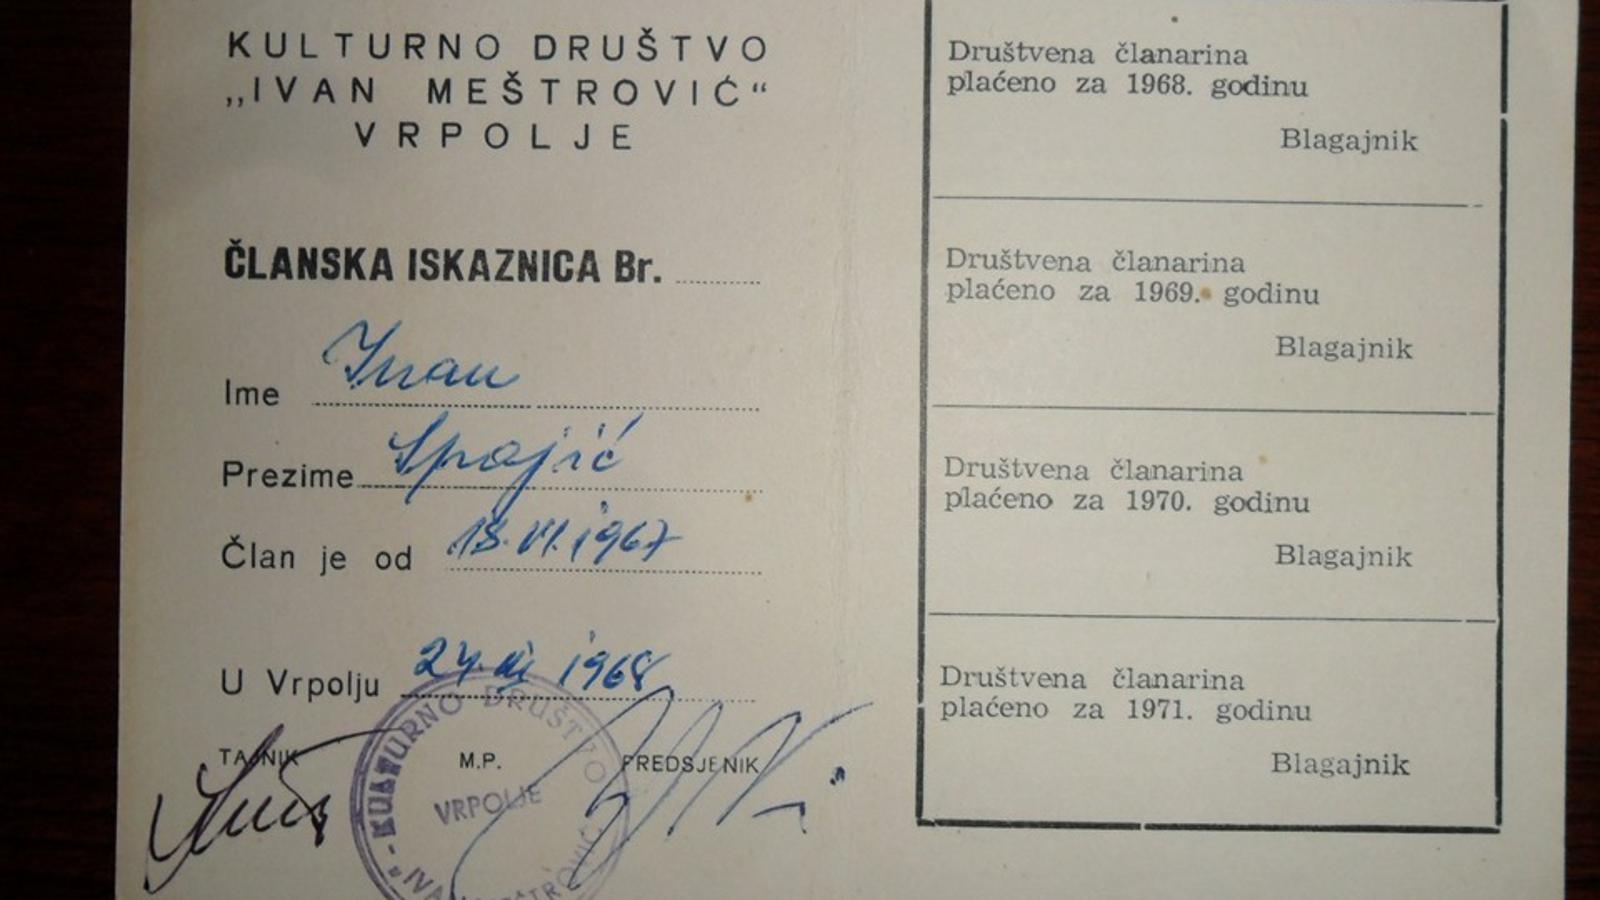 KULTURNO DRUŠTVO
„IVAN MEŠTROVIĆ“
VRPOLJE
ČLANSKA ISKAZNICA Br.
Ime Ivan
Prezime Spajić
Član je od 18. VI. 1967
U Vrpolju 24. III 1968
TAJNIK M.P. PREDSJEDNIK
KULTURNO DRUŠTVO
VRPOLJE
„IVAN MEŠTROVIĆ
Društvena članarina
plaćeno za 1968. godinu
Blagajnik
Društvena članarina
plaćeno za 1969. godinu
Blagajnik
Društvena članarina
plaćeno za 1970. godinu
Blagajnik
Društvena članarina
plaćeno za 1971. godinu
Blagajnik